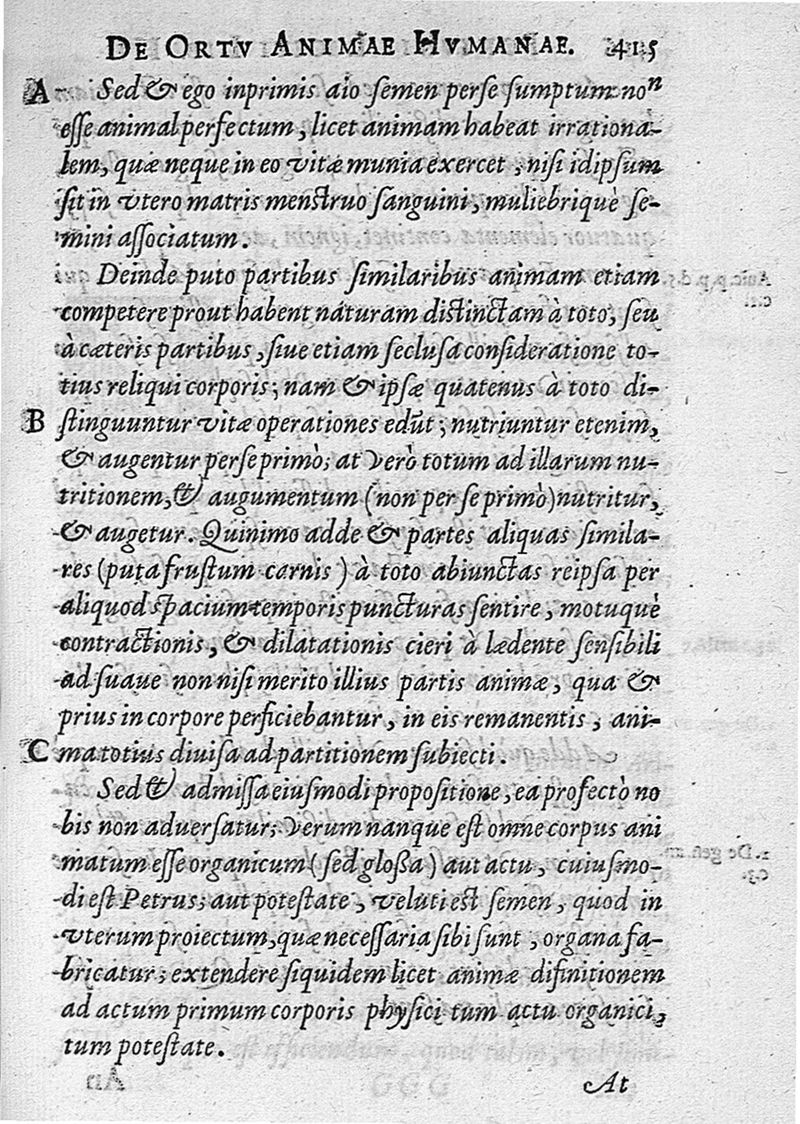 DE ORTV ANIMAE HVMANAE. 415
A Sed & ego inprimis aio semen perse sumptum non
esse animal perfectum, licet animam habeat irrationa-
lem, quæ neque in eo vitæ munia exercet, nisi idipsum
sit in vtero matris menstruo sanguini, muliebriquè se-
mini associatum.
Deinde puto partibus similaribus animam etiam
competere prout habent naturam distinctam à toto, seu
à cæteris partibus, siue etiam seclusa consideratione to-
tius reliqui corporis; nam & ipsæ quatenus à toto di-
B stinguuntur vitæ operationes edūt; nutriuntur etenim,
& augentur perse primò; at verò totum ad illarum nu-
tritionem, & augumentum (non per se primò) nutritur,
& augetur. Quinimo adde & partes aliquas simila-
res (puta frustum carnis) à toto abiunctas reipsa per
aliquod spacium temporis puncturas sentire, motuquè
contractionis, & dilatationis cieri à lædente sensibili
ad suaue non nisi merito illius partis animæ, qua &
prius in corpore perficiebantur, in eis remanentis, ani-
C ma totius diuisa ad partitionem subiecti.
Sed & admissa eiusmodi propositione, ea profectò no
bis non aduersatur; verum nanque est omne corpus ani
matum esse organicum (sed gloßa) aut actu, cuiusmo-
di est Petrus; aut potestate, veluti est semen, quod in
vterum proiectum, quæ necessaria sibi sunt, organa fa-
bricatur; extendere siquidem licet animæ difinitionem
ad actum primum corporis physici tum actu organici,
tum potestate.
At